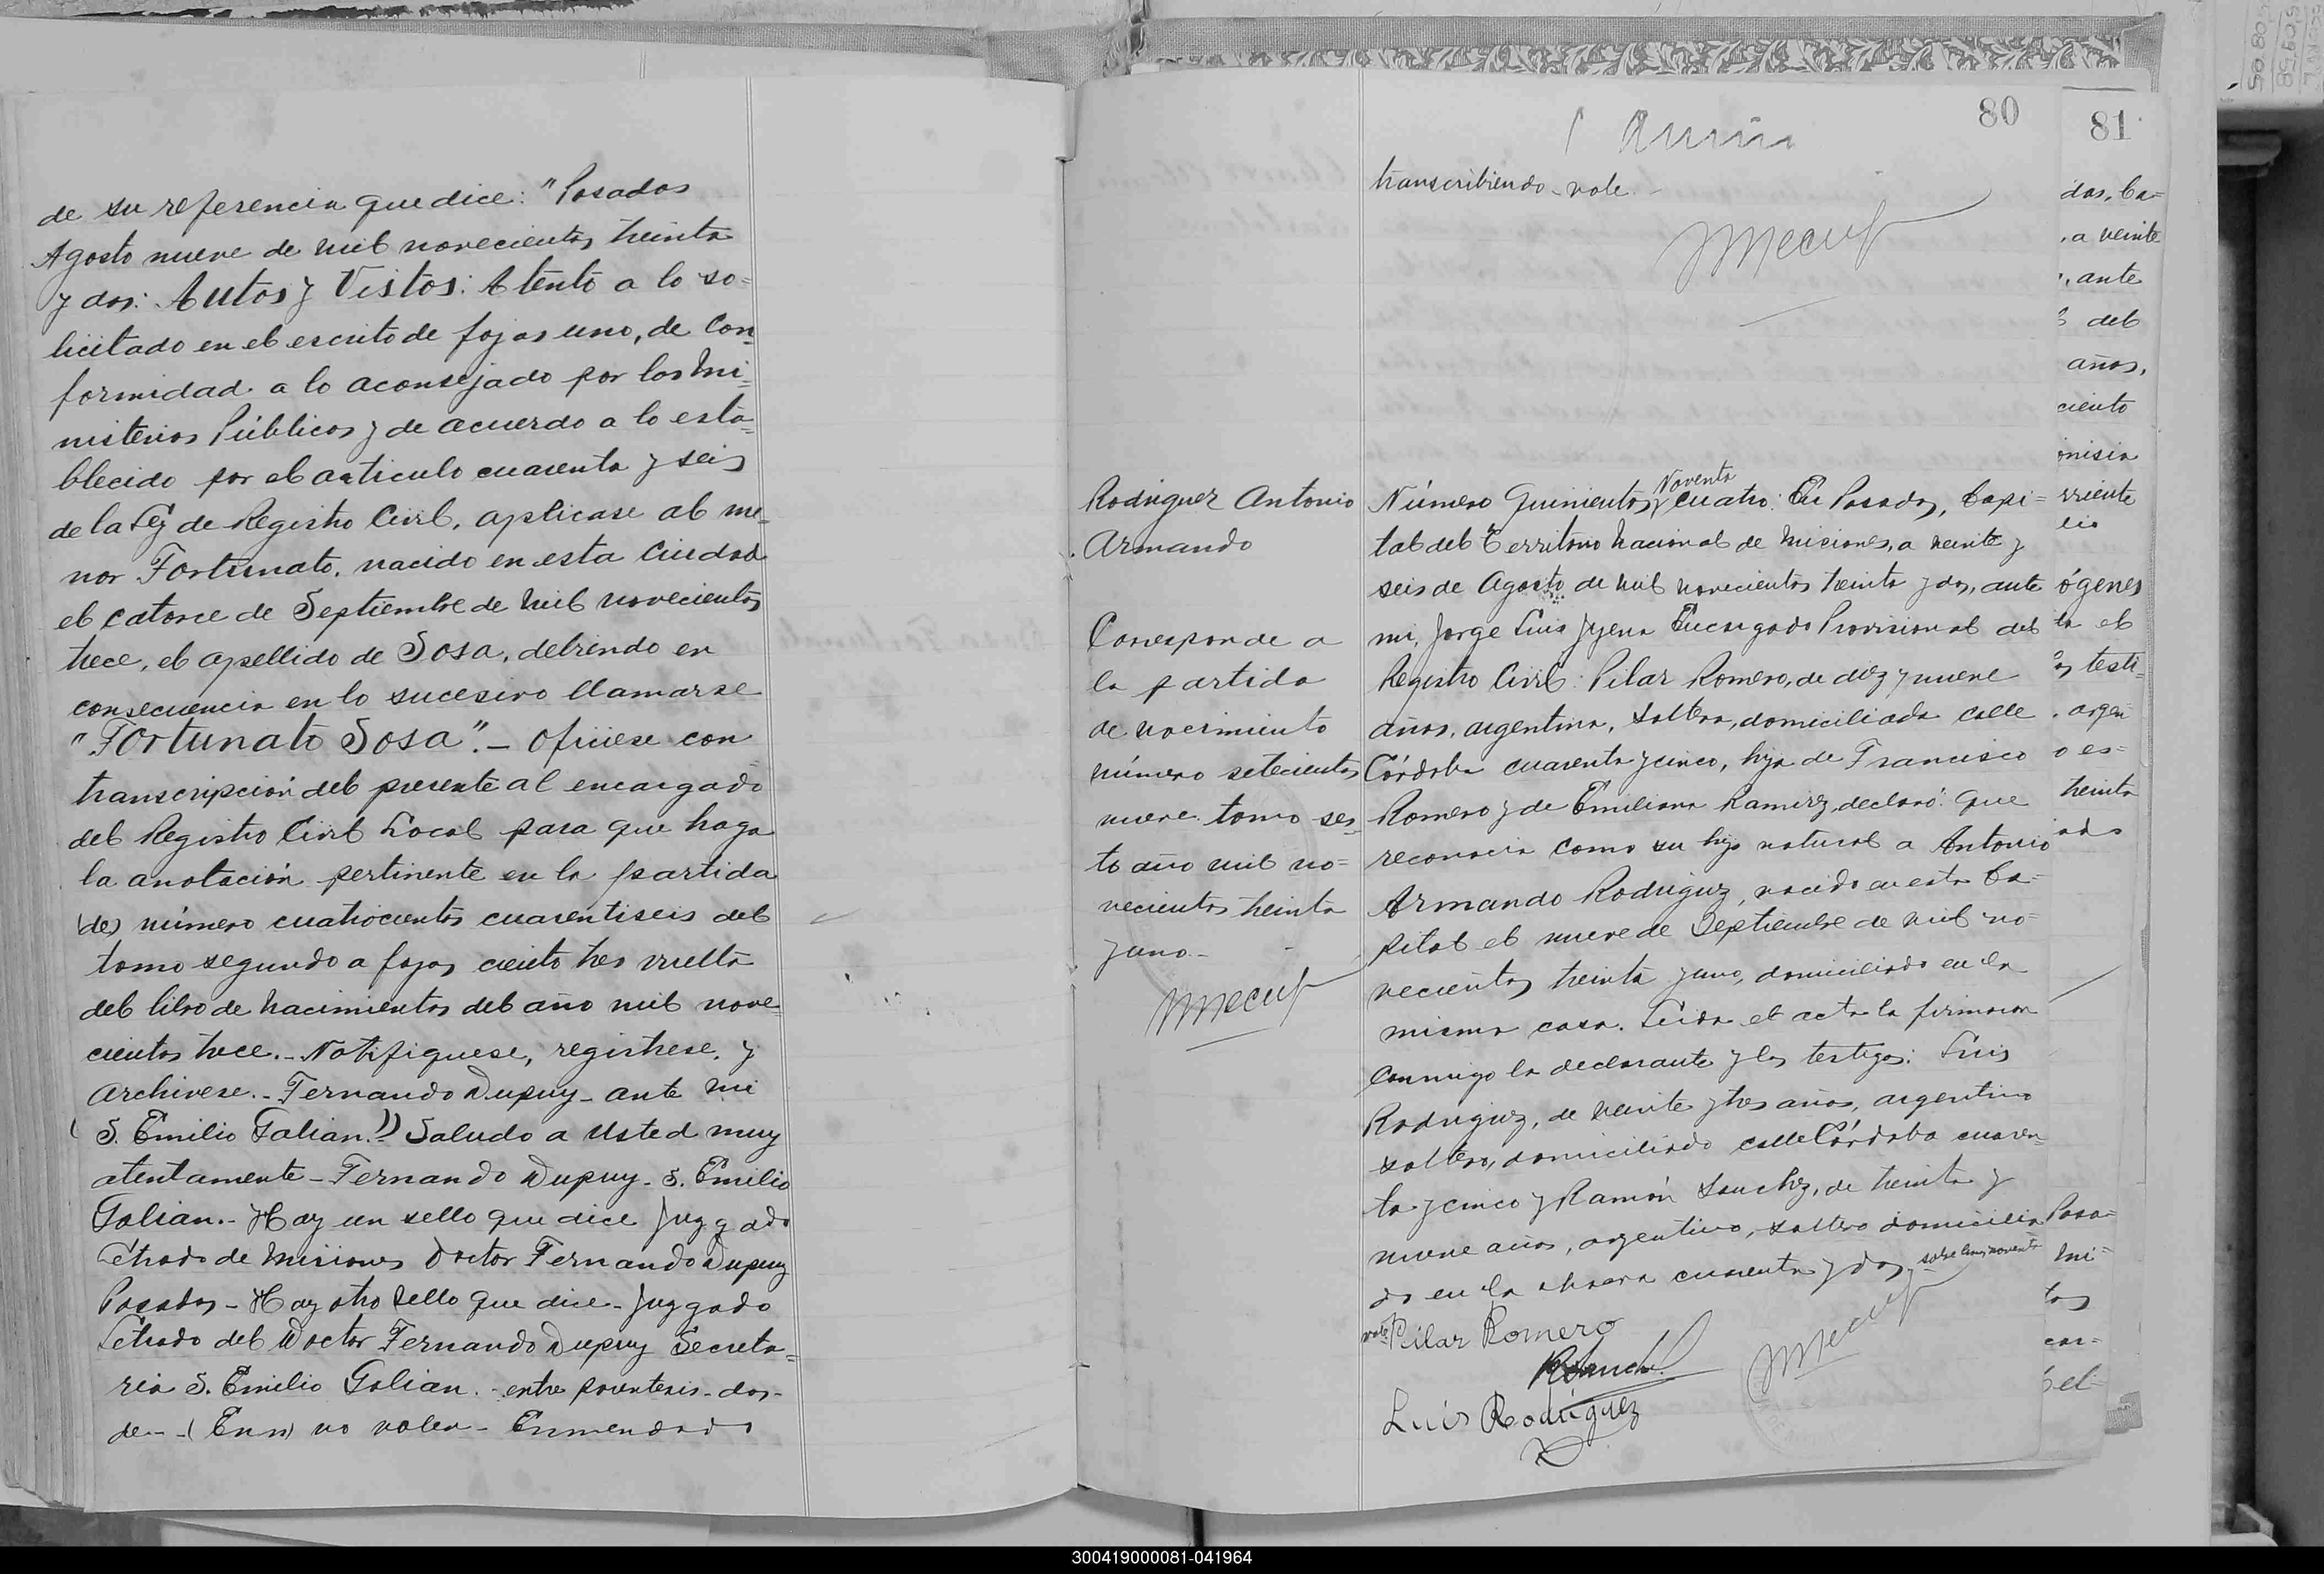 de su referencia que dice: "Posadas
Agosto nueve de mil novecientos treinta
y dos: Autos y Vistos: Atento a lo so=
licitado en el escrito de fojas uno, de con
formidad a lo aconsejado por los Mi=
nisterios Públicos y de acuerdo a lo esta=
blecido por el articulo cuarenta y seis
de la Ley de Registro Civil, aplicase al me=
nor Fortunato, nacido en esta Ciudad
el catorce de Septiembre de mil novecientos
trece, el apellido de Sosa, debiendo en
consecuencia en lo sucesivo llamarse
"Fortunato Sosa".- Ofíciese con
transcripción del presente al encargado
del Registro Civil Local para que haga
la anotación pertinente en la partida
(de) número cuatrocientos cuarentiseis del
tomo segundo a fojas ciento tres vuelta
del libro de nacimientos del año mil nove=
cientos trece.- Notifíquese, regístrese, y
archívese.- Fernando Dupuy - ante mi
S. Emilio Galian.") Saludo a Usted muy
atentamente - Fernando Dupuy - S. Emilio
Galian.- Hay un sello que dice Juzgado
Letrado de Misiones Doctor Fernando Dupuy
Posadas - Hay otro sello que dice - Juzgado
Letrado del Doctor Fernando Dupuy Secreta=
ria S. Emilio Galian.- entre parentesis - dos-
de - no valen - Enmendado
80
transcribiendo - vale -
Rodriguez Antonio
Armando
Corresponde a
la partida
de nacimiento
número setecientos
nueve tomo sex=
to año mil no=
vecientos treinta
y uno.-
Noventa
Número Quinientos y cuatro: En Posadas, Capi=
tal del Territorio Nacional de Misiones, a veinte y
seis de Agosto de mil novecientos treinta y dos, ante
mi, Jorge Luis Encargado Provisional del
Registro Civil: Pilar Romero, de diez y nueve
años, argentina, soltera, domiciliada calle
Córdoba cuarenta y cinco, hija de Francisco
Romero y de Emiliana Ramirez, declaró: Que
reconocia como su hijo natural a Antonio
Armando Rodriguez, nacido en esta Ca=
pital el nueve de Septiembre de mil no=
vecientos treinta y uno, domiciliado en la
misma casa. Leida el acta la firmaron
conmigo la declarante y los testigos: Luis
Rodriguez, de veinte y tres años, argentino
soltero, domiciliado calle Córdoba cuaren
ta y cinco y Ramón Sanchez, de treinta y
nueve años, argentino, soltero domicilia
do en la chacra cuarenta y dos - sobre linea noventa
vale
Pilar Romero
Luis Rodriguez
81
das, Ca=
, a veinte
, ante
del
años,
ciento
onisia
rriente
cio
ógenes
ta el
testi=
, argen
o es=
treinta
ado
Posa=
Mi=
tos
car=
el
300419000081-041964